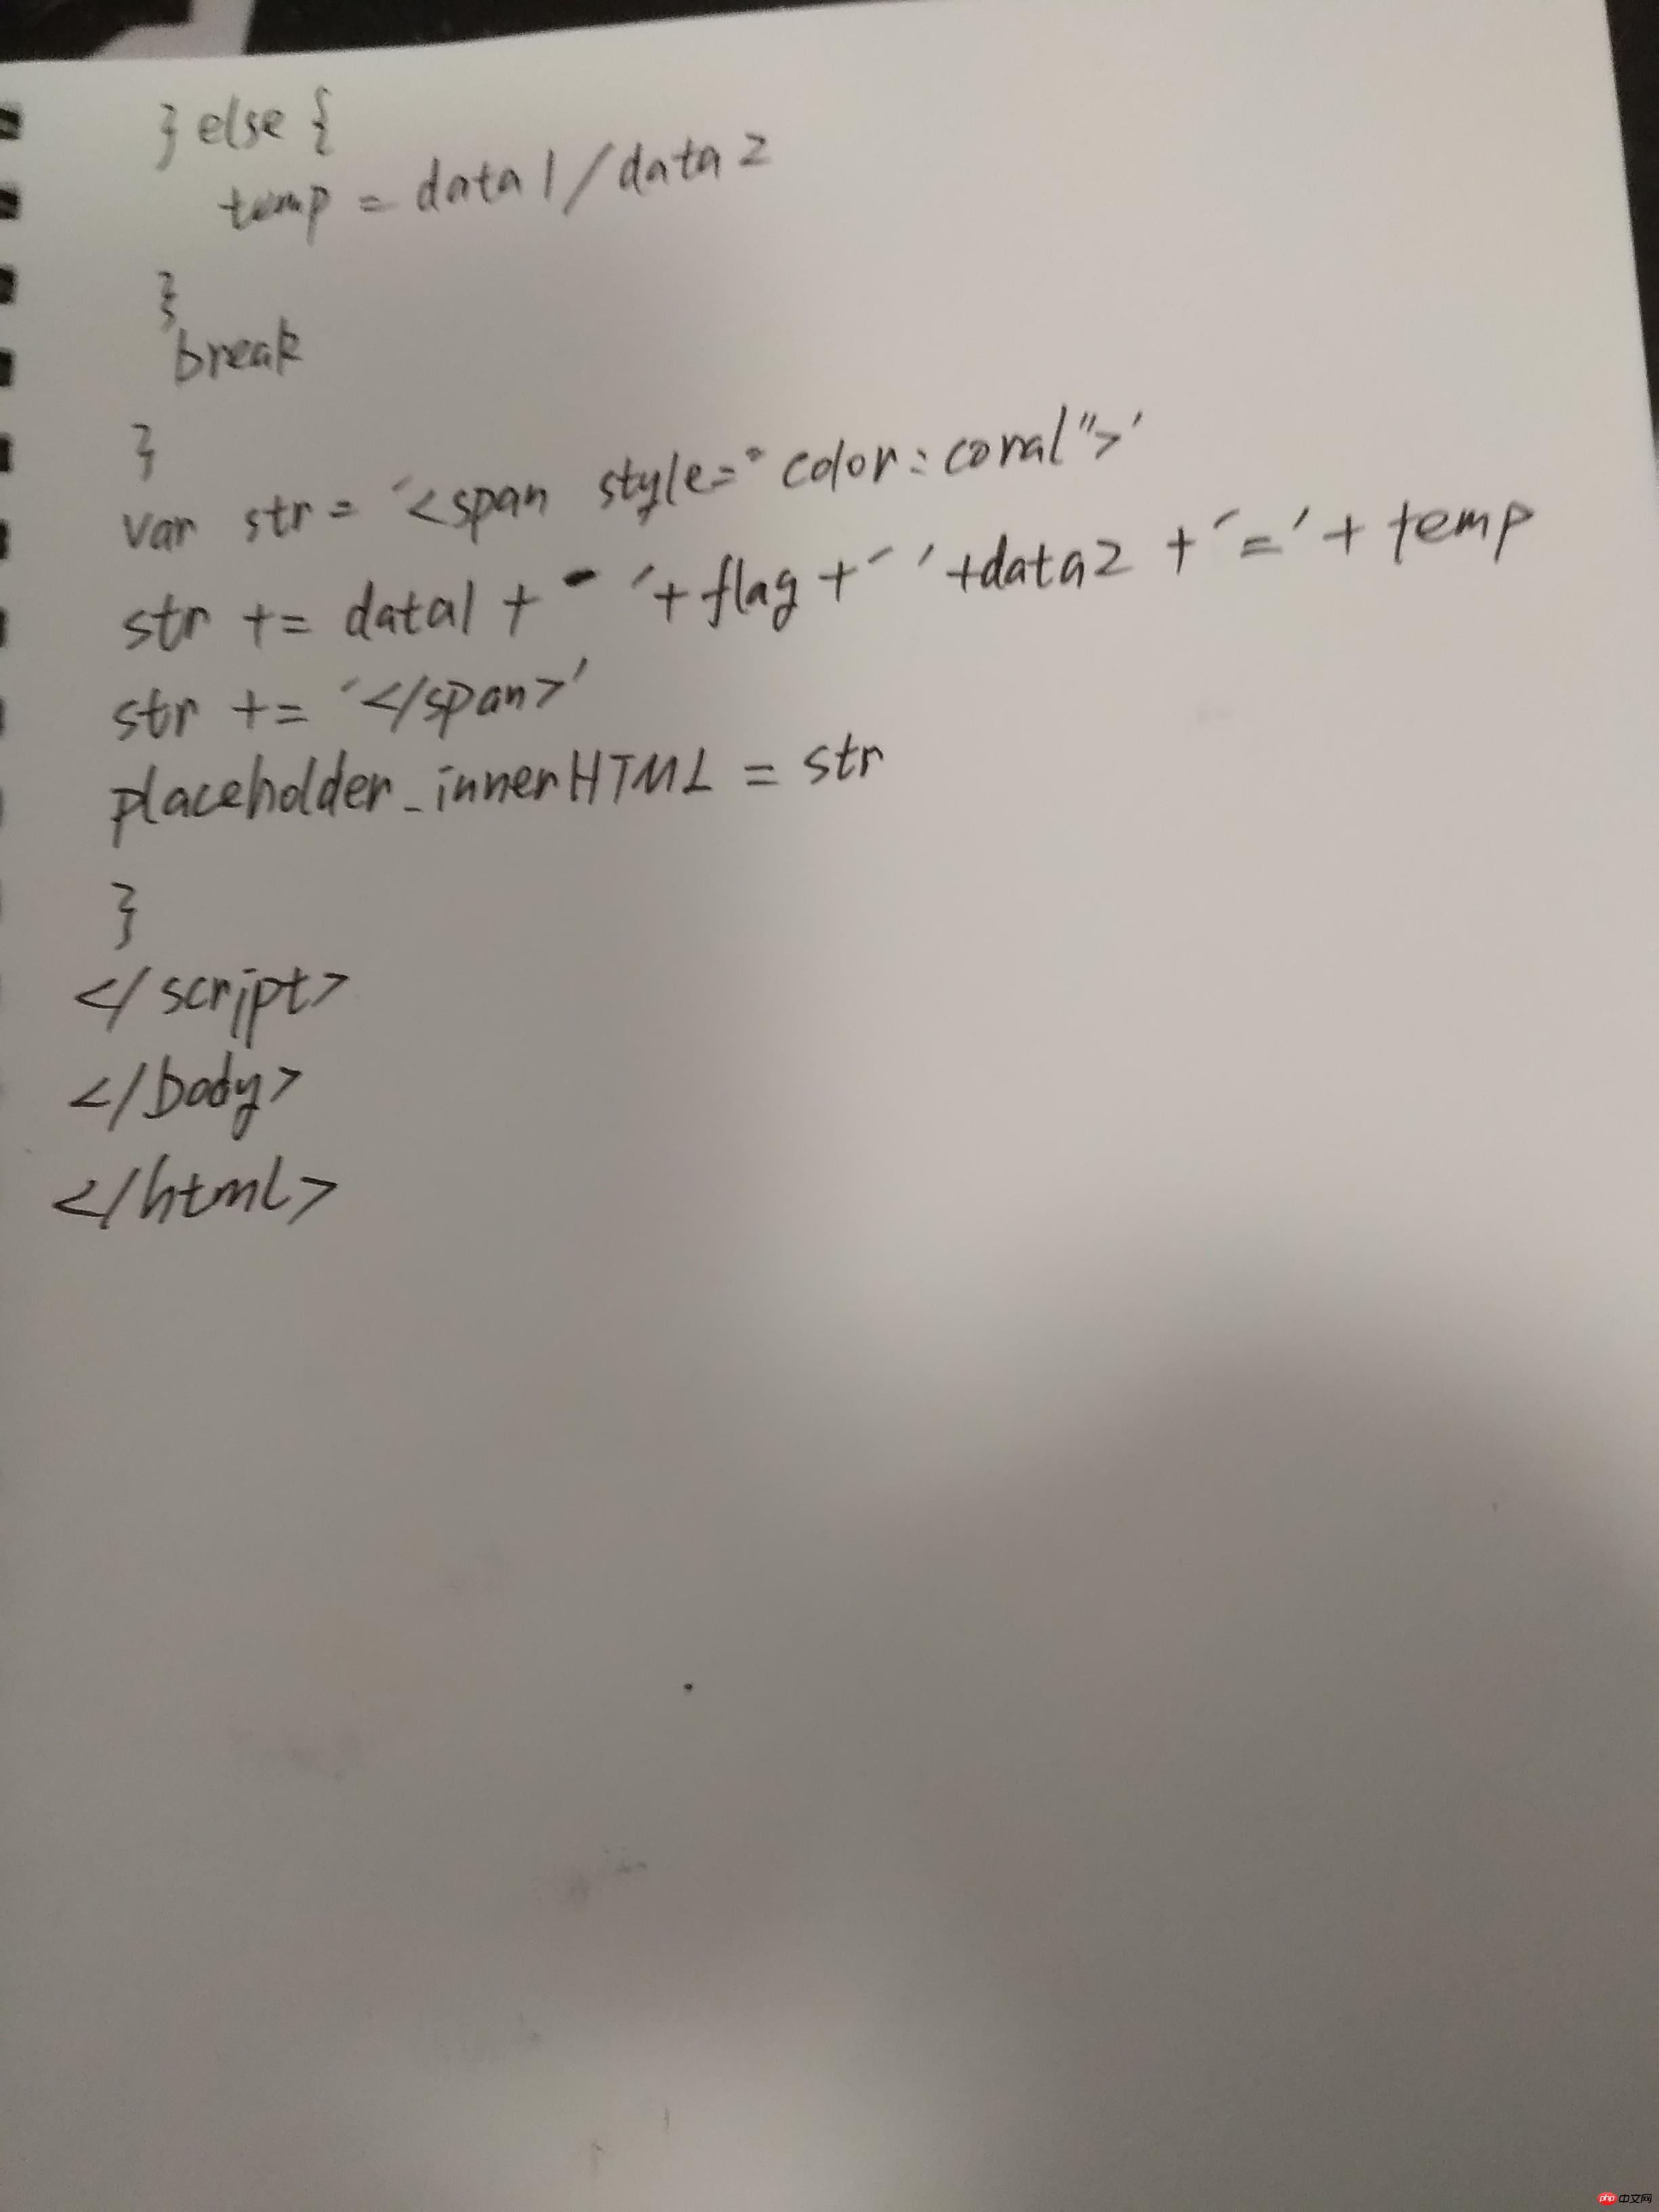 } else {
temp = data1/data2
}
break
}
var str = '<span style="color:coral">'
str += data1 + ' '+flag+' '+data2 +'='+ temp
str += '</span>'
placeholder_innerHTML = str
}
</script>
</body>
</html>
php 中文网